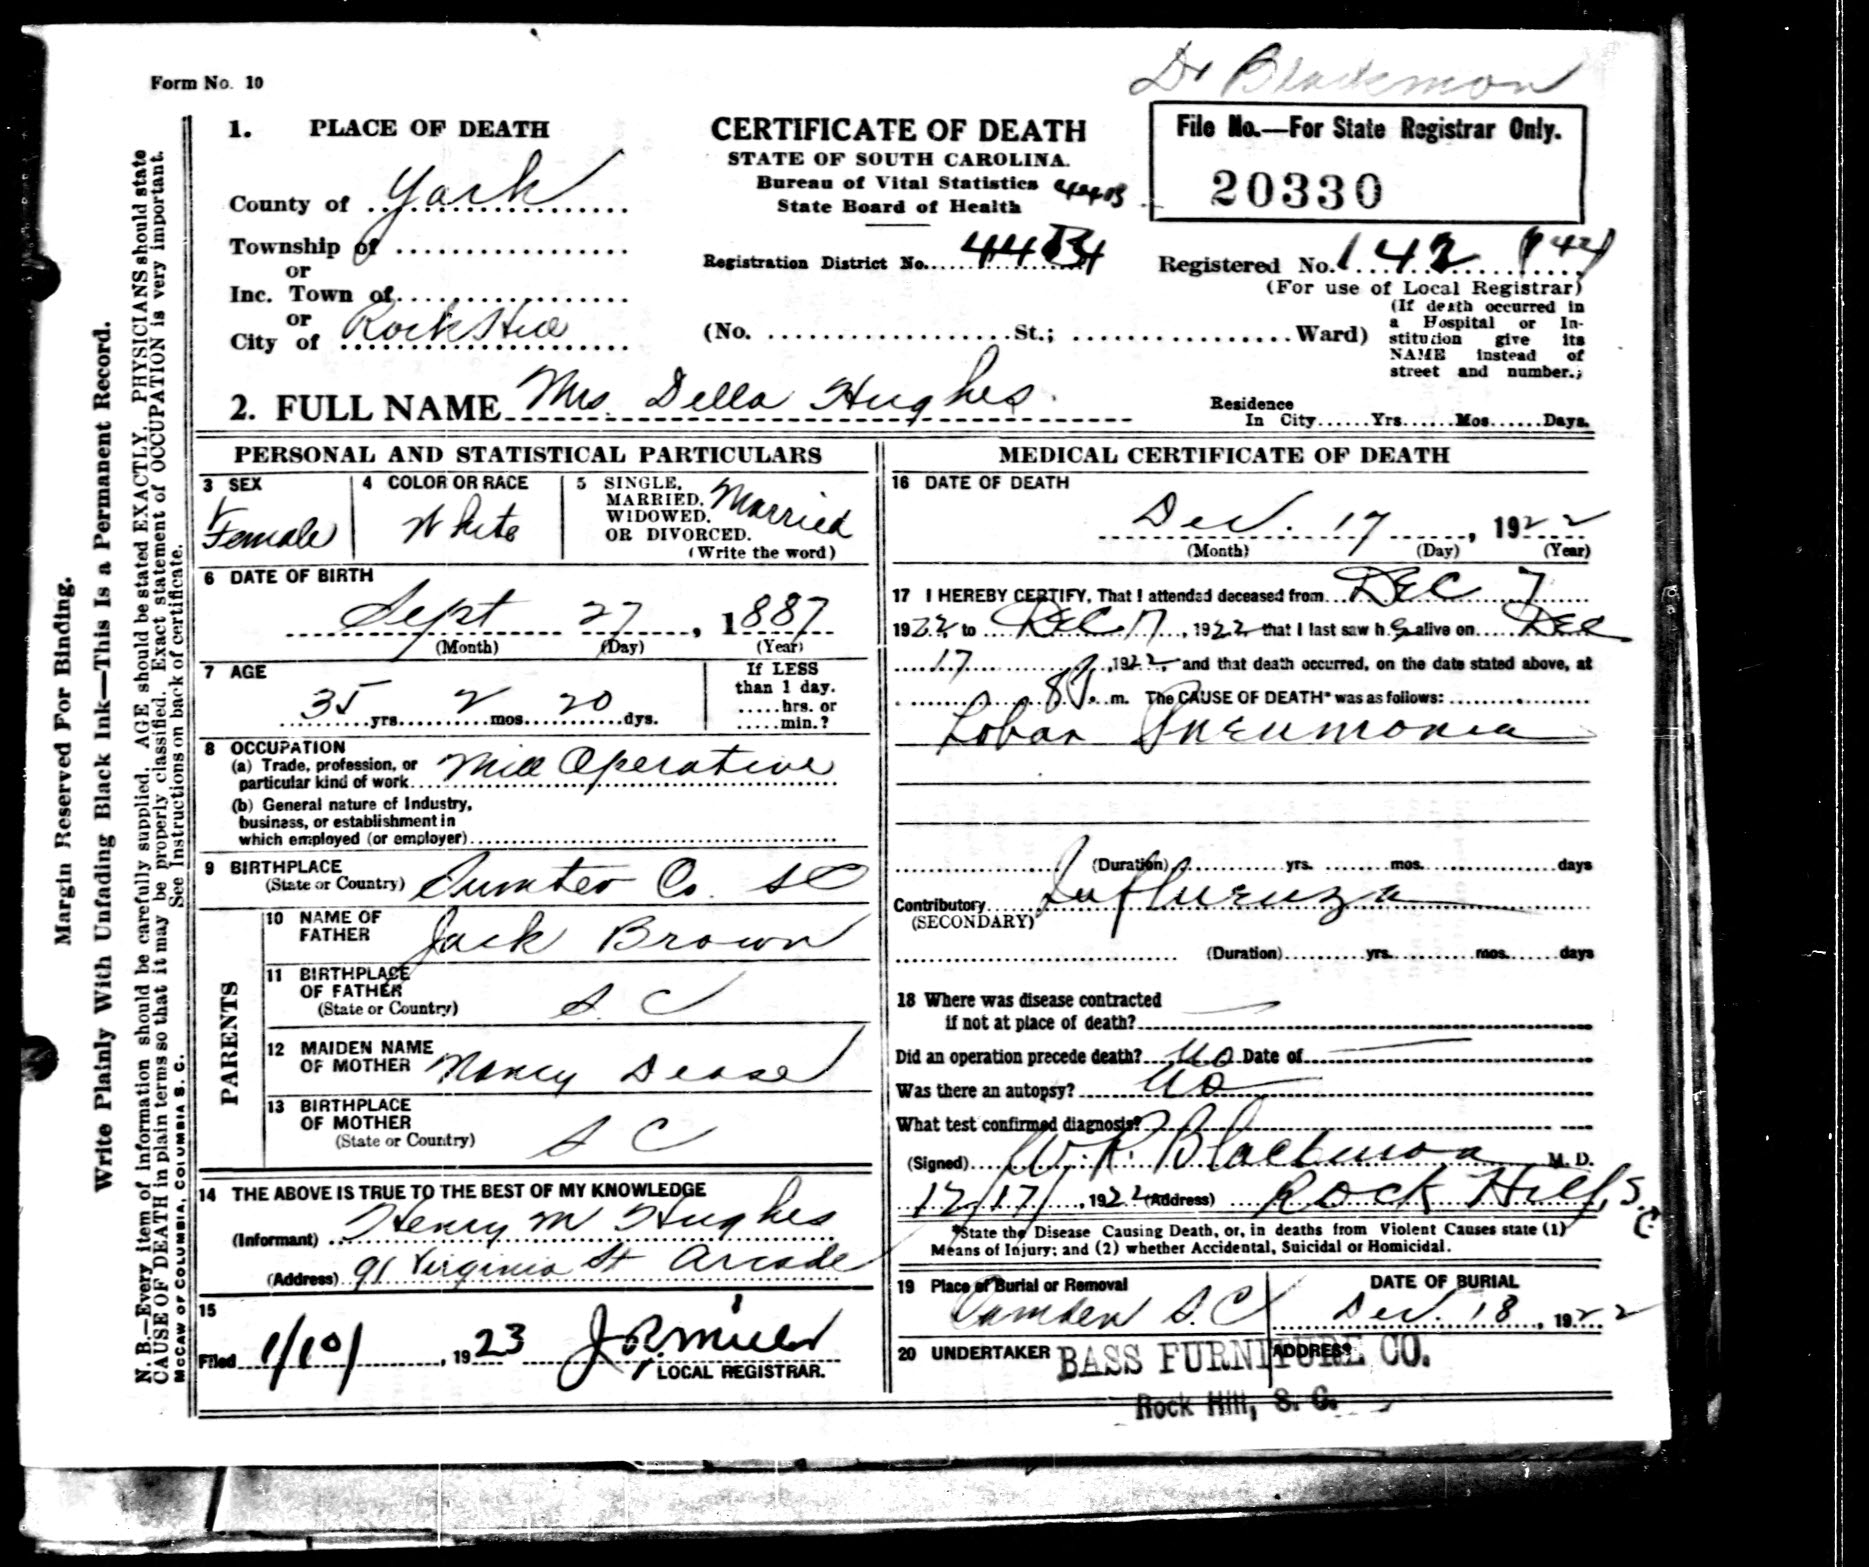 Dr Blackmon
Form No. 10
1. PLACE OF DEATH
County of York
Township of
or
Inc. Town of
or
City of Rock Hill
CERTIFICATE OF DEATH
STATE OF SOUTH CAROLINA.
Bureau of Vital Statistics
State Board of Health
Registration District No.
File No.—For State Registrar Only.
20330
Registered No. 142 144
(For use of Local Registrar)
(No. St.; Ward)
(If death occurred in
a Hospital or In-
stitution give its
NAME instead of
street and number.;
2. FULL NAME Mrs. Della Hughes
Residence
In City Yrs Mos Days.
PERSONAL AND STATISTICAL PARTICULARS
3 SEX
Female
4 COLOR OR RACE
White
5 SINGLE,
MARRIED,
WIDOWED.
OR DIVORCED.
(Write the word)
Married
6 DATE OF BIRTH
Sept 27, 1887
(Month) (Day) (Year)
7 AGE
35 yrs 2 mos 20 dys.
If LESS
than 1 day.
hrs. or
min.?
8 OCCUPATION
(a) Trade, profession, or
particular kind of work Mill Operative
(b) General nature of Industry,
business, or establishment in
which employed (or employer)
9 BIRTHPLACE
(State or Country) Sumter Co. SC
PARENTS
10 NAME OF
FATHER Jack Brown
11 BIRTHPLACE
OF FATHER
(State or Country) S. C
12 MAIDEN NAME
OF MOTHER Nancy Dease
13 BIRTHPLACE
OF MOTHER
(State or Country) S C
14 THE ABOVE IS TRUE TO THE BEST OF MY KNOWLEDGE
(Informant) Henry M Hughes
(Address) 91 Virginia St Arcade
15
Filed 1/10/, 1923 J. R. Miller
LOCAL REGISTRAR.
MEDICAL CERTIFICATE OF DEATH
16 DATE OF DEATH
Dec. 17, 1922
(Month) (Day) (Year)
17 I HEREBY CERTIFY, That I attended deceased from DEC 7
1922 to DEC 17, 1922 that I last saw h alive on DEC
17, 1922, and that death occurred, on the date stated above, at
8 m. The CAUSE OF DEATH* was as follows:
Lobar Pneumonia
(Duration) yrs. mos. days
Contributory Influenza
(SECONDARY)
(Duration) yrs. mos. days
18 Where was disease contracted
if not at place of death?
Did an operation precede death? No Date of
Was there an autopsy? No
What test confirmed diagnosis?
(Signed) Blackmon M. D.
12/17/, 1922 (Address) Rock Hill, S. C
*State the Disease Causing Death, or, in deaths from Violent Causes state (1)
Means of Injury; and (2) whether Accidental, Suicidal or Homicidal.
19 Place of Burial or Removal
Camden S. C
DATE OF BURIAL
Dec. 18, 1922
20 UNDERTAKER ADDRESS
BASS FURNITURE CO.
Rock Hill, S. C.
Margin Reserved For Binding.
Write Plainly With Unfading Black Ink—This Is a Permanent Record.
N. B.—Every item of information should be carefully supplied. AGE should be stated EXACTLY. PHYSICIANS should state
CAUSE OF DEATH in plain terms so that it may be properly classified. Exact statement of OCCUPATION is very important.
See Instructions on back of certificate.
McCAW OF COLUMBIA, COLUMBIA S. C.